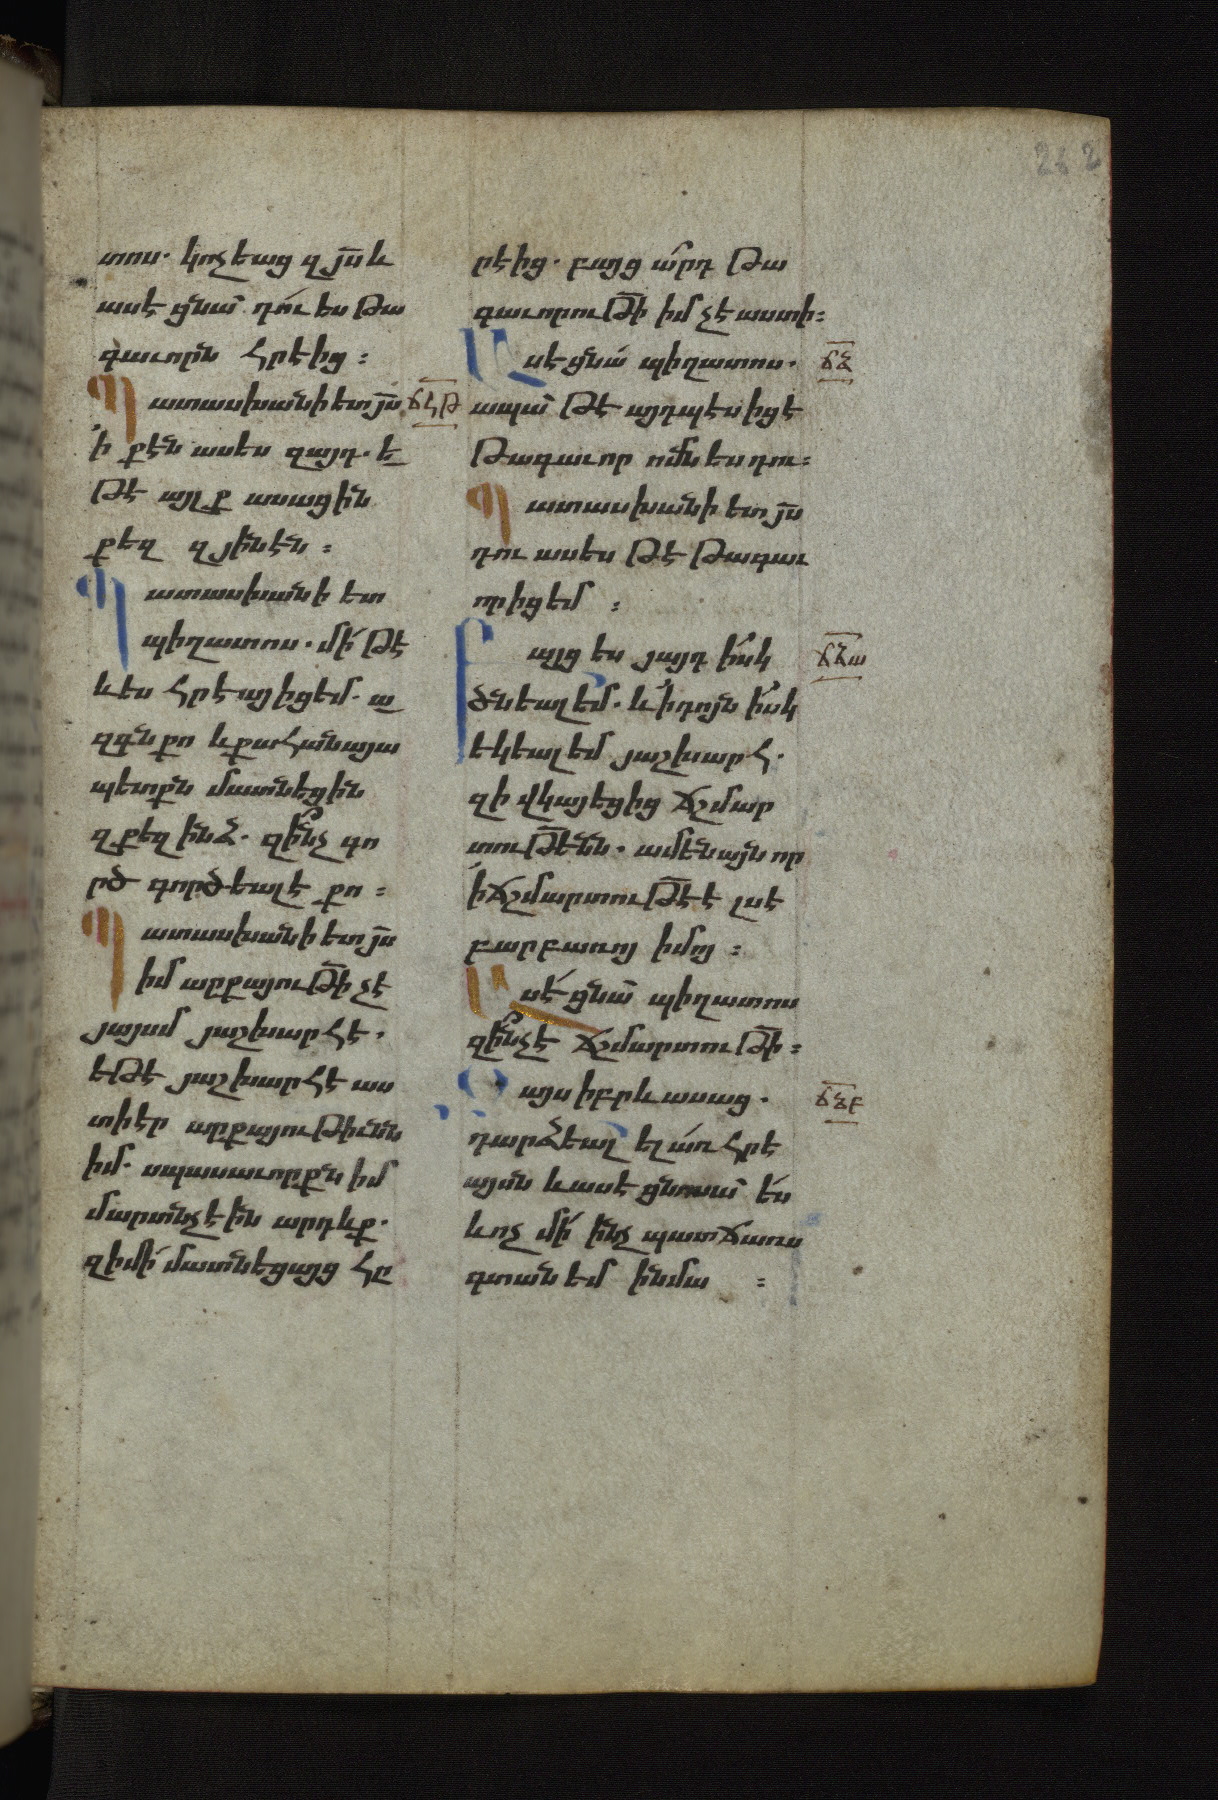 տոս. կոչեաց զյս և
ասէ ցնա՛ դու ես թա
գաւորն հրէից :
Պատասխանի ետ յս ճկթ
ի քէն ասես զայդ. ե
թէ այլք ասացին
քեզ զյինէն :
Պատասխանի ետ
պիղատոս. մի՛ թէ
և ես հրեայ իցեմ. ա
զգն քո և քահանայա
պետքն մատնեցին
զքեզ ինձ. զի՞նչ գո
րծ գործեալ է քո :
Պատասխանի ետ յս
իմ արքայութի չէ
յայսմ յաշխարհէ.
եթէ յաշխարհէ աս
տի էր արքայութիւնն
իմ. սպասաւորքն իմ
մարտնչէին արդևք.
զի մի՛ մատնեցայց հր
րէից. բայց ա՛րդ թա
գաւորութի իմ չէ աստի :
Ասէ ցնա՛ պիղատոս. ճհ
ապա՛ թէ այդպէս իցէ
թագաւոր ոմն ես դու :
Պատասխանի ետ յս
դու ասես թէ թագաւ
որ իցեմ :
Բայց ես յայդ իսկ ճհա
ծնեալ եմ. և ի դոյն իսկ
եկեալ եմ յաշխարհ.
զի վկայեցից ճշմար
տութենն. ամենայն որ
ի ճշմարտութէ է լսէ
բարբառոյ իմոյ :
Ասէ ցնա՛ պիղատոս
զի՞նչ է ճշմարտութի :
Զայս իբրև ասաց. ճհբ
դարձեալ ել առ հրէ
այսն և ասէ ցնոսա՛ ես
և ոչ մի՛ ինչ պատճառս
գտանեմ ի նմա :
262